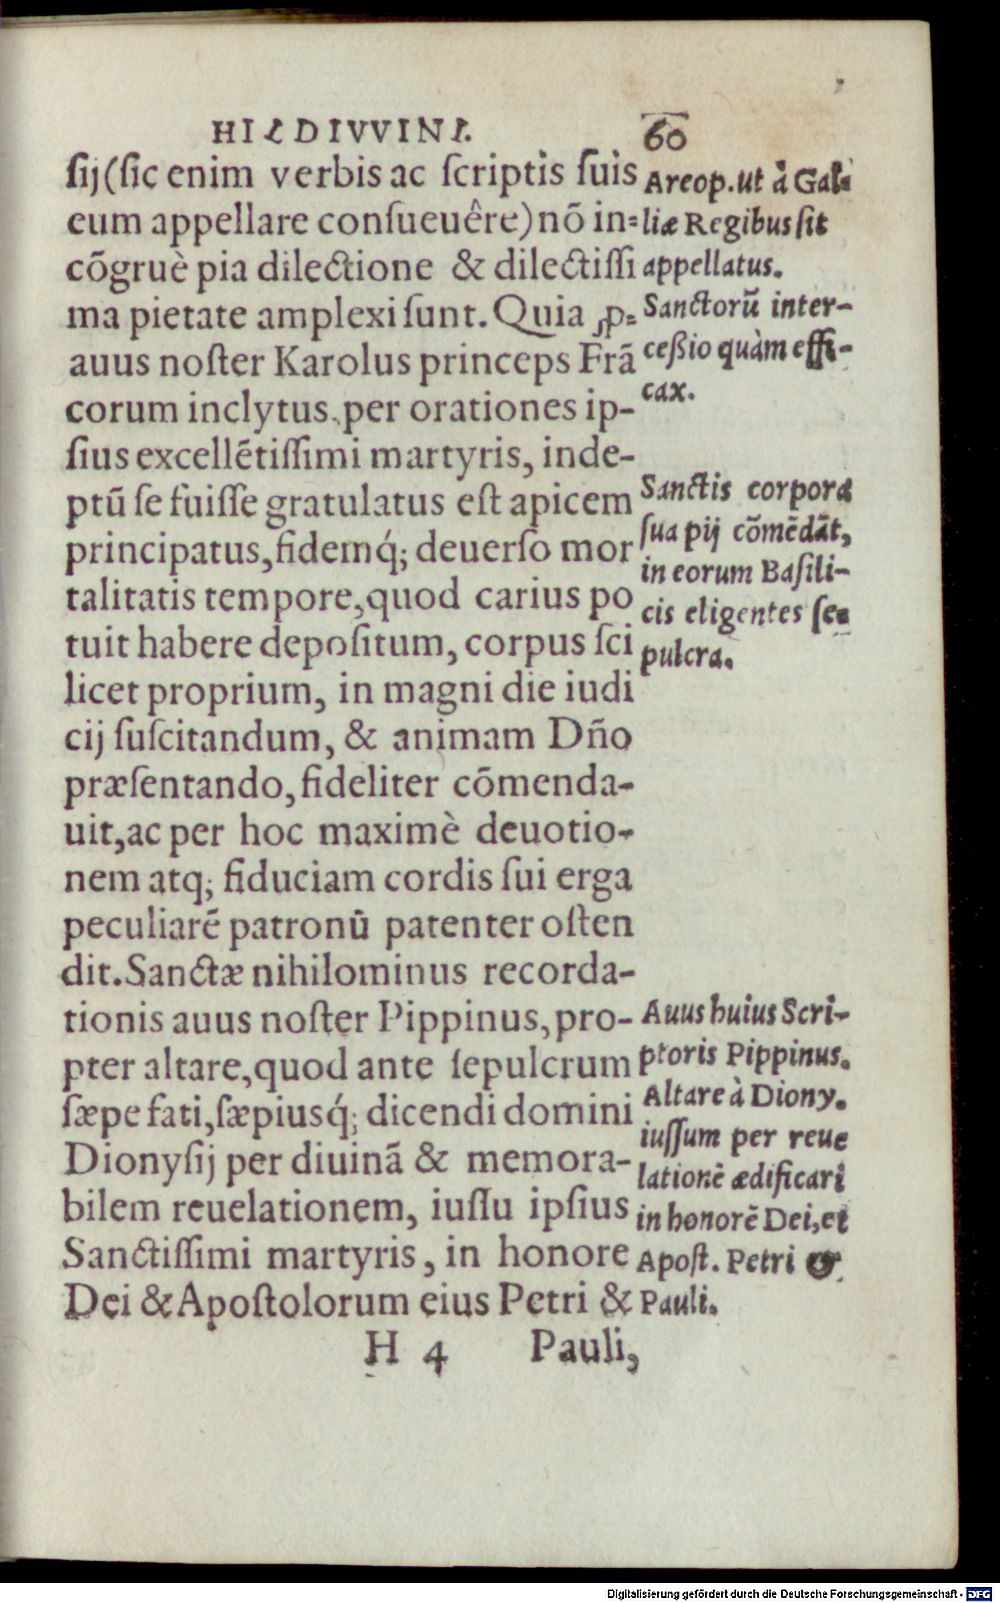 HILDIVVINI. 60
ſij (ſic enim verbis ac ſcriptis ſuis
eum appellare conſueuêre) nō in-
cōgruè pia dilectione & dilectiſſi
ma pietate amplexi ſunt. Quia ꝓ-
auus noſter Karolus princeps Frā
corum inclytus, per orationes ip-
ſius excellētiſſimi martyris, inde-
ptū ſe fuiſſe gratulatus eſt apicem
principatus, fidemq́; deuerſo mor
talitatis tempore, quod carius po
tuit habere depoſitum, corpus ſci
licet proprium, in magni die iudi
cij ſuſcitandum, & animam Dn̄o
præſentando, fideliter cōmenda-
uit, ac per hoc maximè deuotio-
nem atq; fiduciam cordis ſui erga
peculiarē patronū patenter oſten
dit. Sanctæ nihilominus recorda-
tionis auus noſter Pippinus, pro-
pter altare, quod ante ſepulcrum
ſæpe fati, ſæpiusq́; dicendi domini
Dionyſij per diuinā & memora-
bilem reuelationem, iuſſu ipſius
Sanctiſſimi martyris, in honore
Dei & Apoſtolorum eius Petri &
H 4 Pauli,
Areop. ut à Gal-
liæ Regibus ſit
appellatus.
Sanctorū inter-
ceßio quàm effi-
cax.
Sanctis corpora
ſua pij cōmēdāt,
in eorum Baſili-
cis eligentes ſe-
pulcra.
Auus huius Scri-
ptoris Pippinus.
Altare à Diony.
iuſſum per reue
lationē ædificari
in honorē Dei, et
Apoſt. Petri &
Pauli.
Digitalisierung gefördert durch die Deutsche Forschungsgemeinschaft - DFG